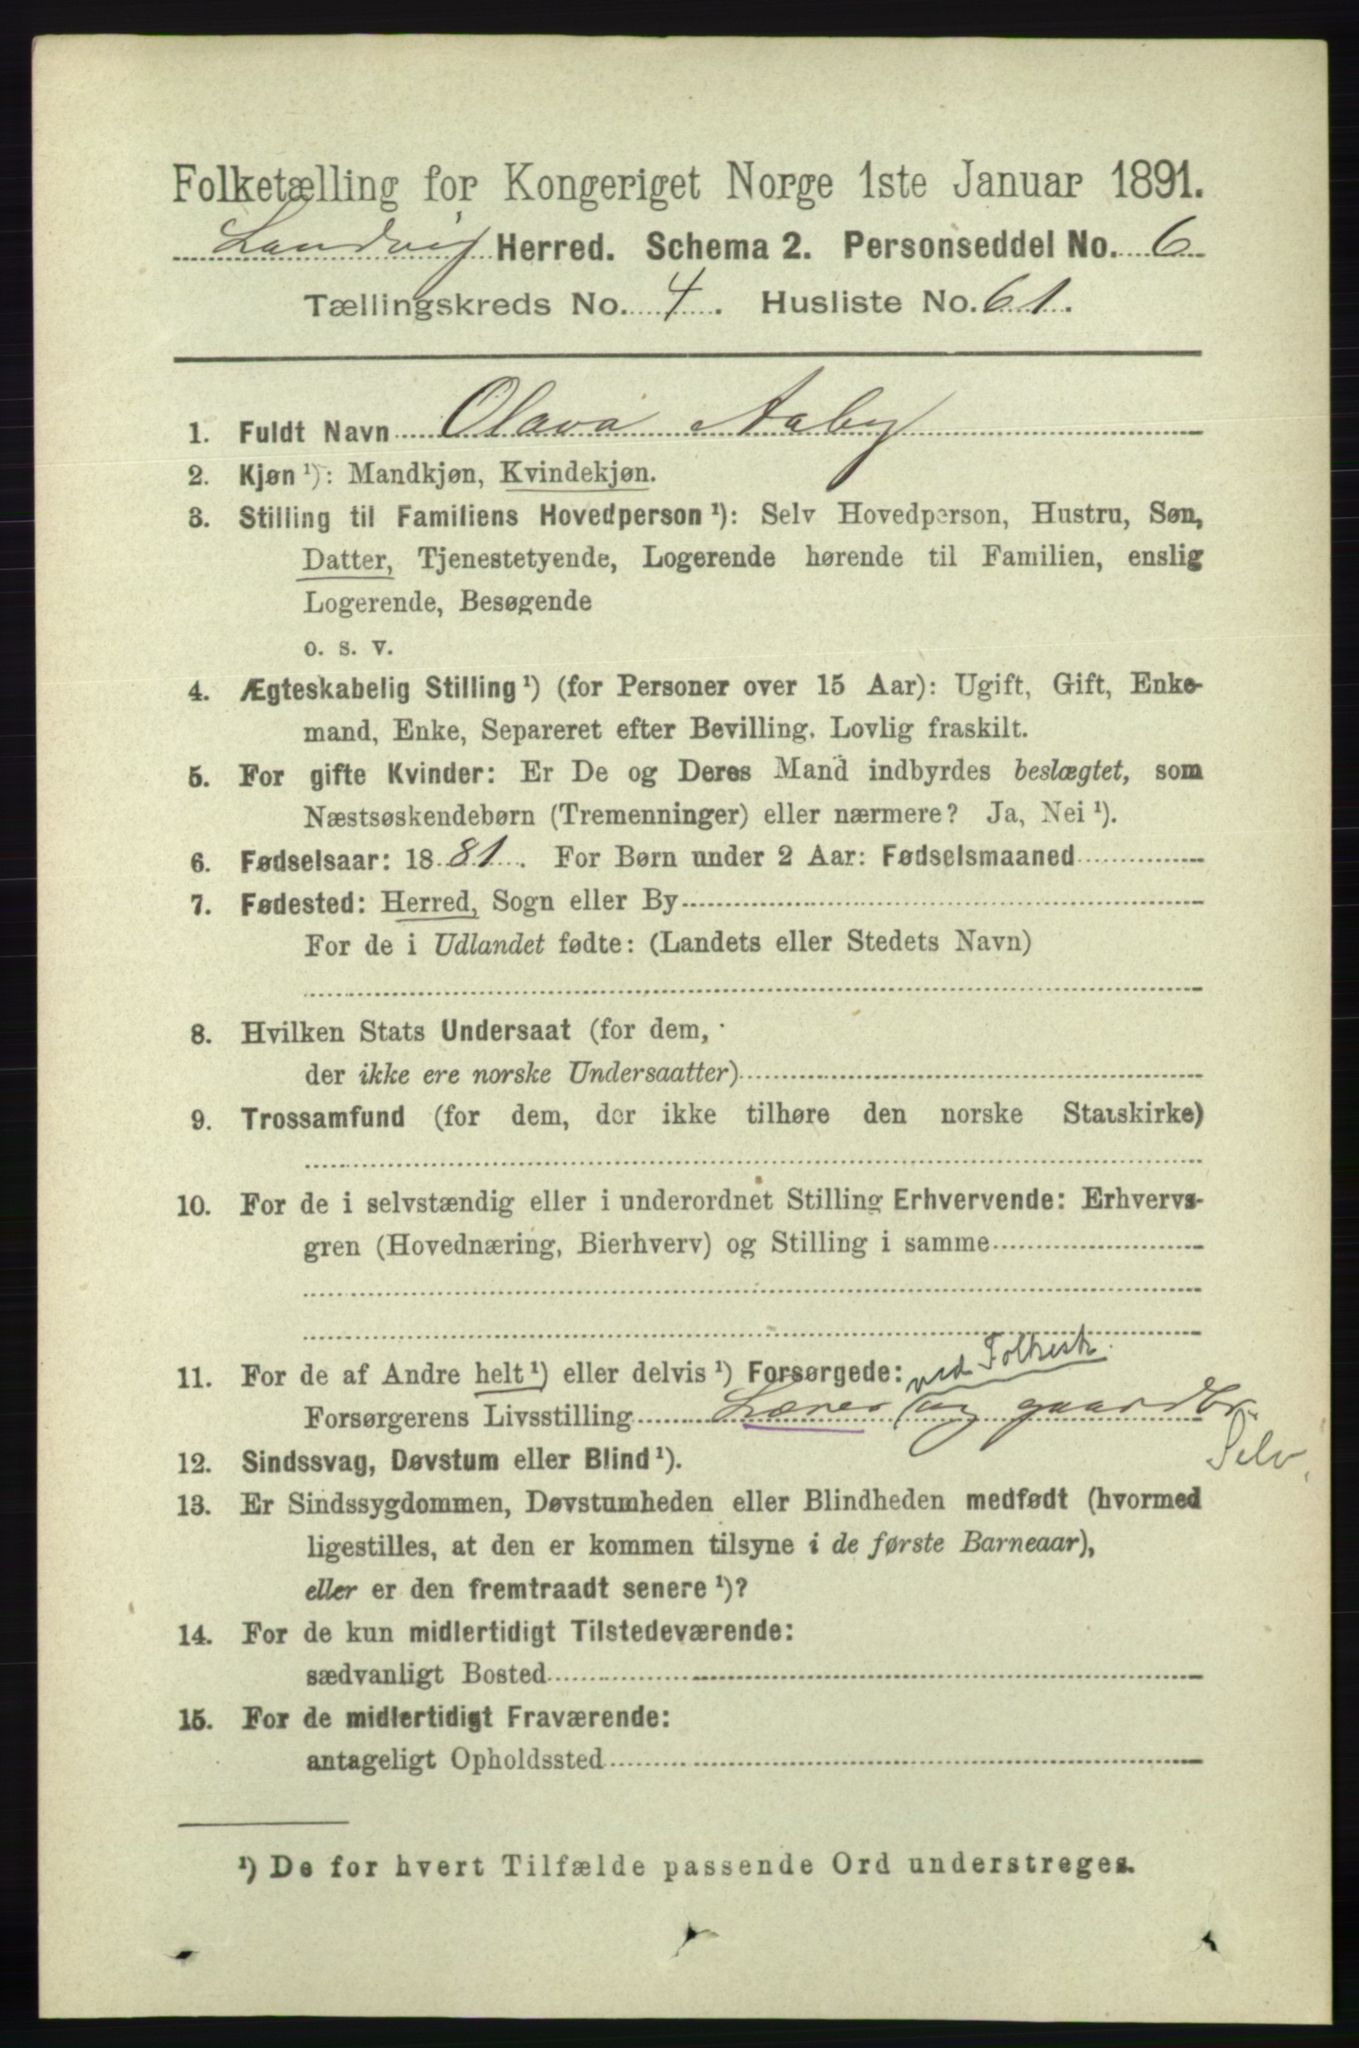 Folketælling for Kongeriget Norge 1ste Januar 1891.
Landvig Herred. Schema 2. Personseddel No. 6
Tællingskreds No. 4. Husliste No. 61.
1. Fuldt Navn Olava Aaby
2. Kjøn ¹): Mandkjøn, Kvindekjøn.
3. Stilling til Familiens Hovedperson ¹): Selv Hovedperson, Hustru, Søn,
Datter, Tjenestetyende, Logerende hørende til Familien, enslig
Logerende, Besøgende
o. s. v.
4. Ægteskabelig Stilling ¹) (for Personer over 15 Aar): Ugift, Gift, Enke-
mand, Enke, Separeret efter Bevilling. Lovlig fraskilt.
5. For gifte Kvinder: Er De og Deres Mand indbyrdes beslægtet, som
Næstsøskendebørn (Tremenninger) eller nærmere? Ja, Nei ¹).
6. Fødselsaar: 1881. For Børn under 2 Aar: Fødselsmaaned
7. Fødested: Herred, Sogn eller By
For de i Udlandet fødte: (Landets eller Stedets Navn)
8. Hvilken Stats Undersaat (for dem,
der ikke ere norske Undersaatter)
9. Trossamfund (for dem, der ikke tilhøre den norske Statskirke)
10. For de i selvstændig eller i underordnet Stilling Erhvervende: Erhvervs-
gren (Hovednæring, Bierhverv) og Stilling i samme
11. For de af Andre helt ¹) eller delvis ¹) Forsørgede: ved Folkesk.
Forsørgerens Livsstilling Lærer og gaardbr.
Selv
12. Sindssvag, Døvstum eller Blind ¹).
13. Er Sindssygdommen, Døvstumheden eller Blindheden medfødt (hvormed
ligestilles, at den er kommen tilsyne i de første Barneaar),
eller er den fremtraadt senere ¹)?
14. For de kun midlertidigt Tilstedeværende:
sædvanligt Bosted
15. For de midlertidigt Fraværende:
antageligt Opholdssted
¹) De for hvert Tilfælde passende Ord understreges.